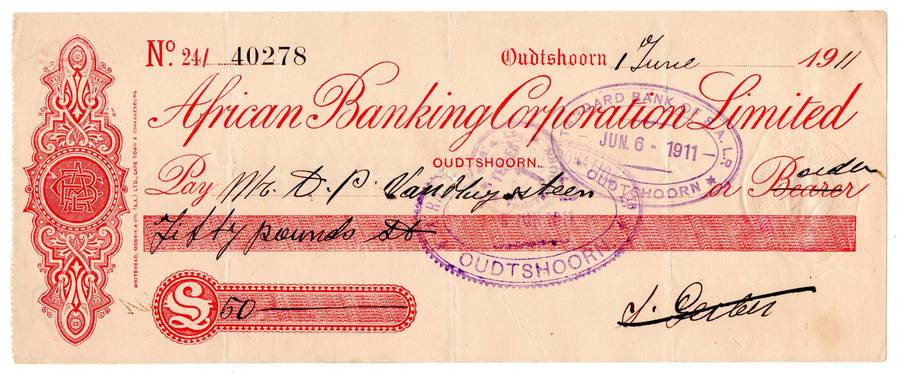 No. 24/ 40278
Oudtshoorn 1 June 1911
African Banking Corporation Limited
OUDTSHOORN.
Pay Mr. D. P. Vandhuysteen or Bearer order
Fifty pounds
£ 50
STANDARD BANK OF S.A. LD
JUN. 6 - 1911
OUDTSHOORN
OUDTSHOORN.
WHITEHEAD, MORRIS & CO. (S.A.) LTD., CAPE TOWN & JOHANNESBURG